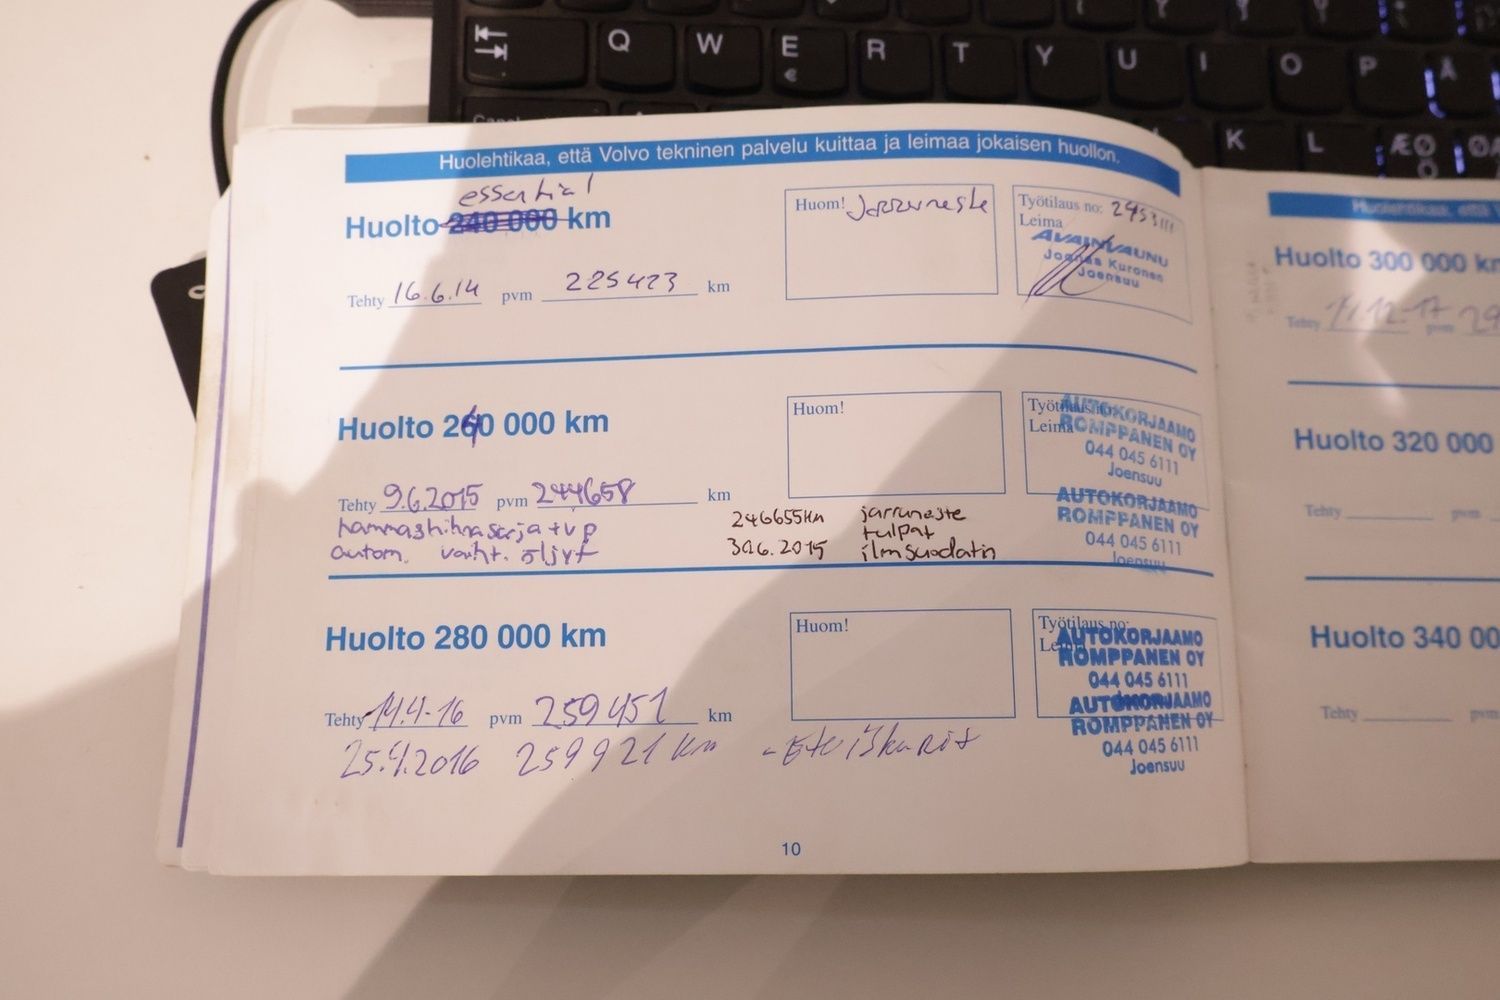 Q W E R T Y U I O P Å
€
K L ÆØ
Huolehtikaa, että Volvo tekninen palvelu kuittaa ja leimaa jokaisen huollon.
essential
Huolto 240 000 km
Tehty 16.6.14 pvm 225423 km
Huom! Jarruneste
Työtilaus no:
Leima
AVAINVAUNU
Joonas Kuronen
Joensuu
Huolto 240 000 km
Tehty 9.6.2015 pvm 244658 km
hammashihnasarja + vp
autom. vaiht. öljyt
Huom!
246655km jarruneste
tulpat
30.6.2015 ilmsuodatin
Työtilaus no:
Leima
AUTOKORJAAMO
ROMPPANEN OY
044 045 6111
Joensuu
AUTOKORJAAMO
ROMPPANEN OY
044 045 6111
Joensuu
Huolto 280 000 km
Tehty 14.4-16 pvm 259451 km
25.4.2016 259921 km
Huom!
Työtilaus no:
AUTOKORJAAMO
ROMPPANEN OY
044 045 6111
AUTOKORJAAMO
ROMPPANEN OY
044 045 6111
Joensuu
10
Huolehtikaa, että
Huolto 300 000 km
Tehty 12-17 pvm
Huolto 320 000
Tehty
Huolto 340 00
Tehty pvm